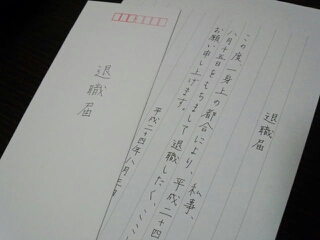 退職届
この度一身上の都合により、私事、平成二十四
八月十五日をもちまして退職したく、ここ
お願い申し上げます。
平成二十四年八月
退職届